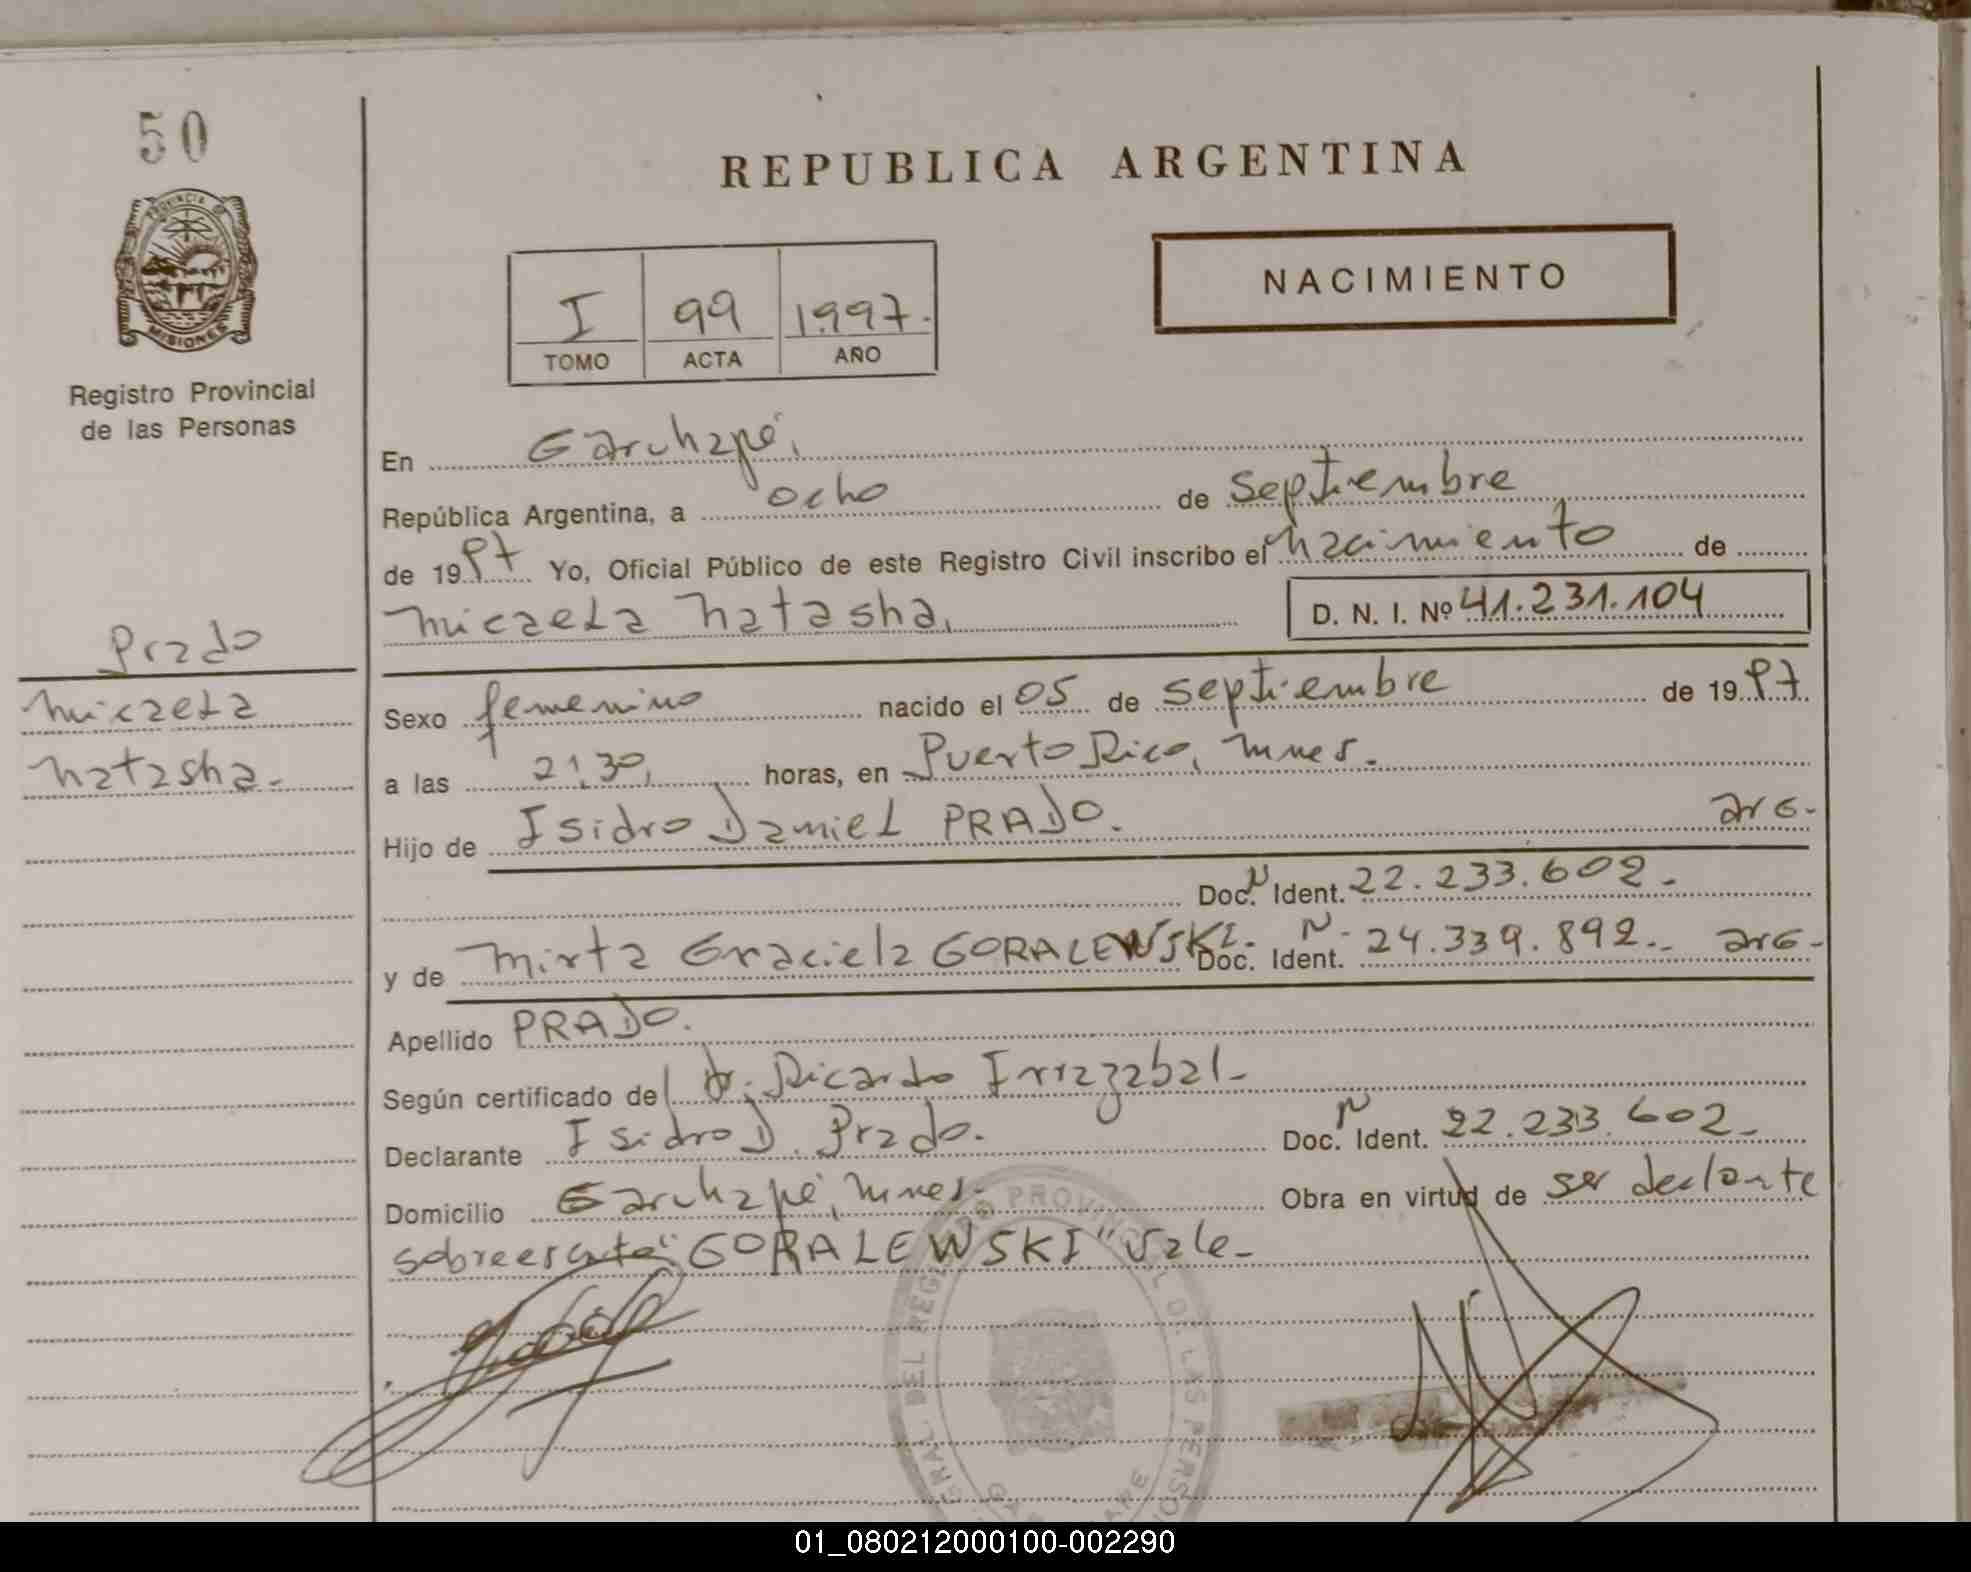 50
REPUBLICA ARGENTINA
PROVINCIA DE
MISIONES
NACIMIENTO
I 99 1997.
TOMO ACTA AÑO
Registro Provincial
de las Personas
En Garuhapé,
República Argentina, a ocho de septiembre
de 1997 Yo, Oficial Público de este Registro Civil inscribo el nacimiento de
Micaela Natasha, D. N. I. Nº 41.231.104
Prado
Micaela
Natasha.-
Sexo femenino nacido el 05 de septiembre de 1997.
a las 21,30, horas, en Puerto Rico, Mnes.
Hijo de Isidro Daniel PRADO. arg-
Doc. N Ident. 22.233.602.-
y de Mirta Graciela GORALEWSKI- Doc. N- Ident. 24.339.892.- arg-
Apellido PRADO.
Según certificado del Dr. Ricardo Irrazabal-
Declarante Isidro D. Prado. Doc. N Ident. 22.233.602-
Domicilio Garuhapé, Mnes- Obra en virtud de ser declante
sobreescrito: "GORALEWSKI" Vale-
REGISTRO PROVINCIAL DE LAS PERSO
01_080212000100-002290